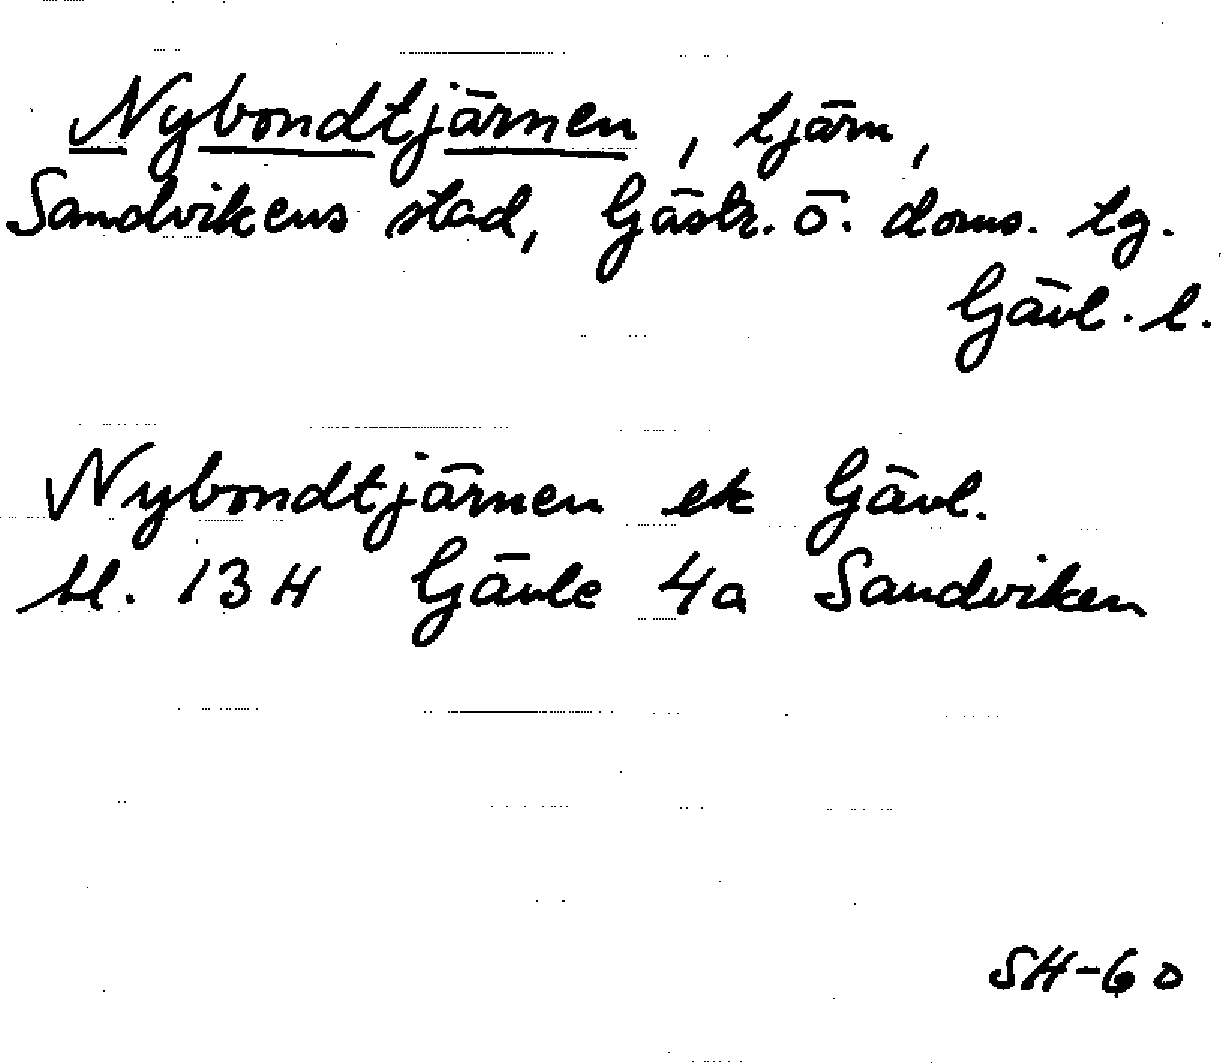 Nybondtjärnen, tjärn,
Sandvikens stad, Gästr. ö. doms. tg.
Gävl. l.
Nybondtjärnen ek Gävl.
bl. 13H Gävle 4a Sandviken
SH-60